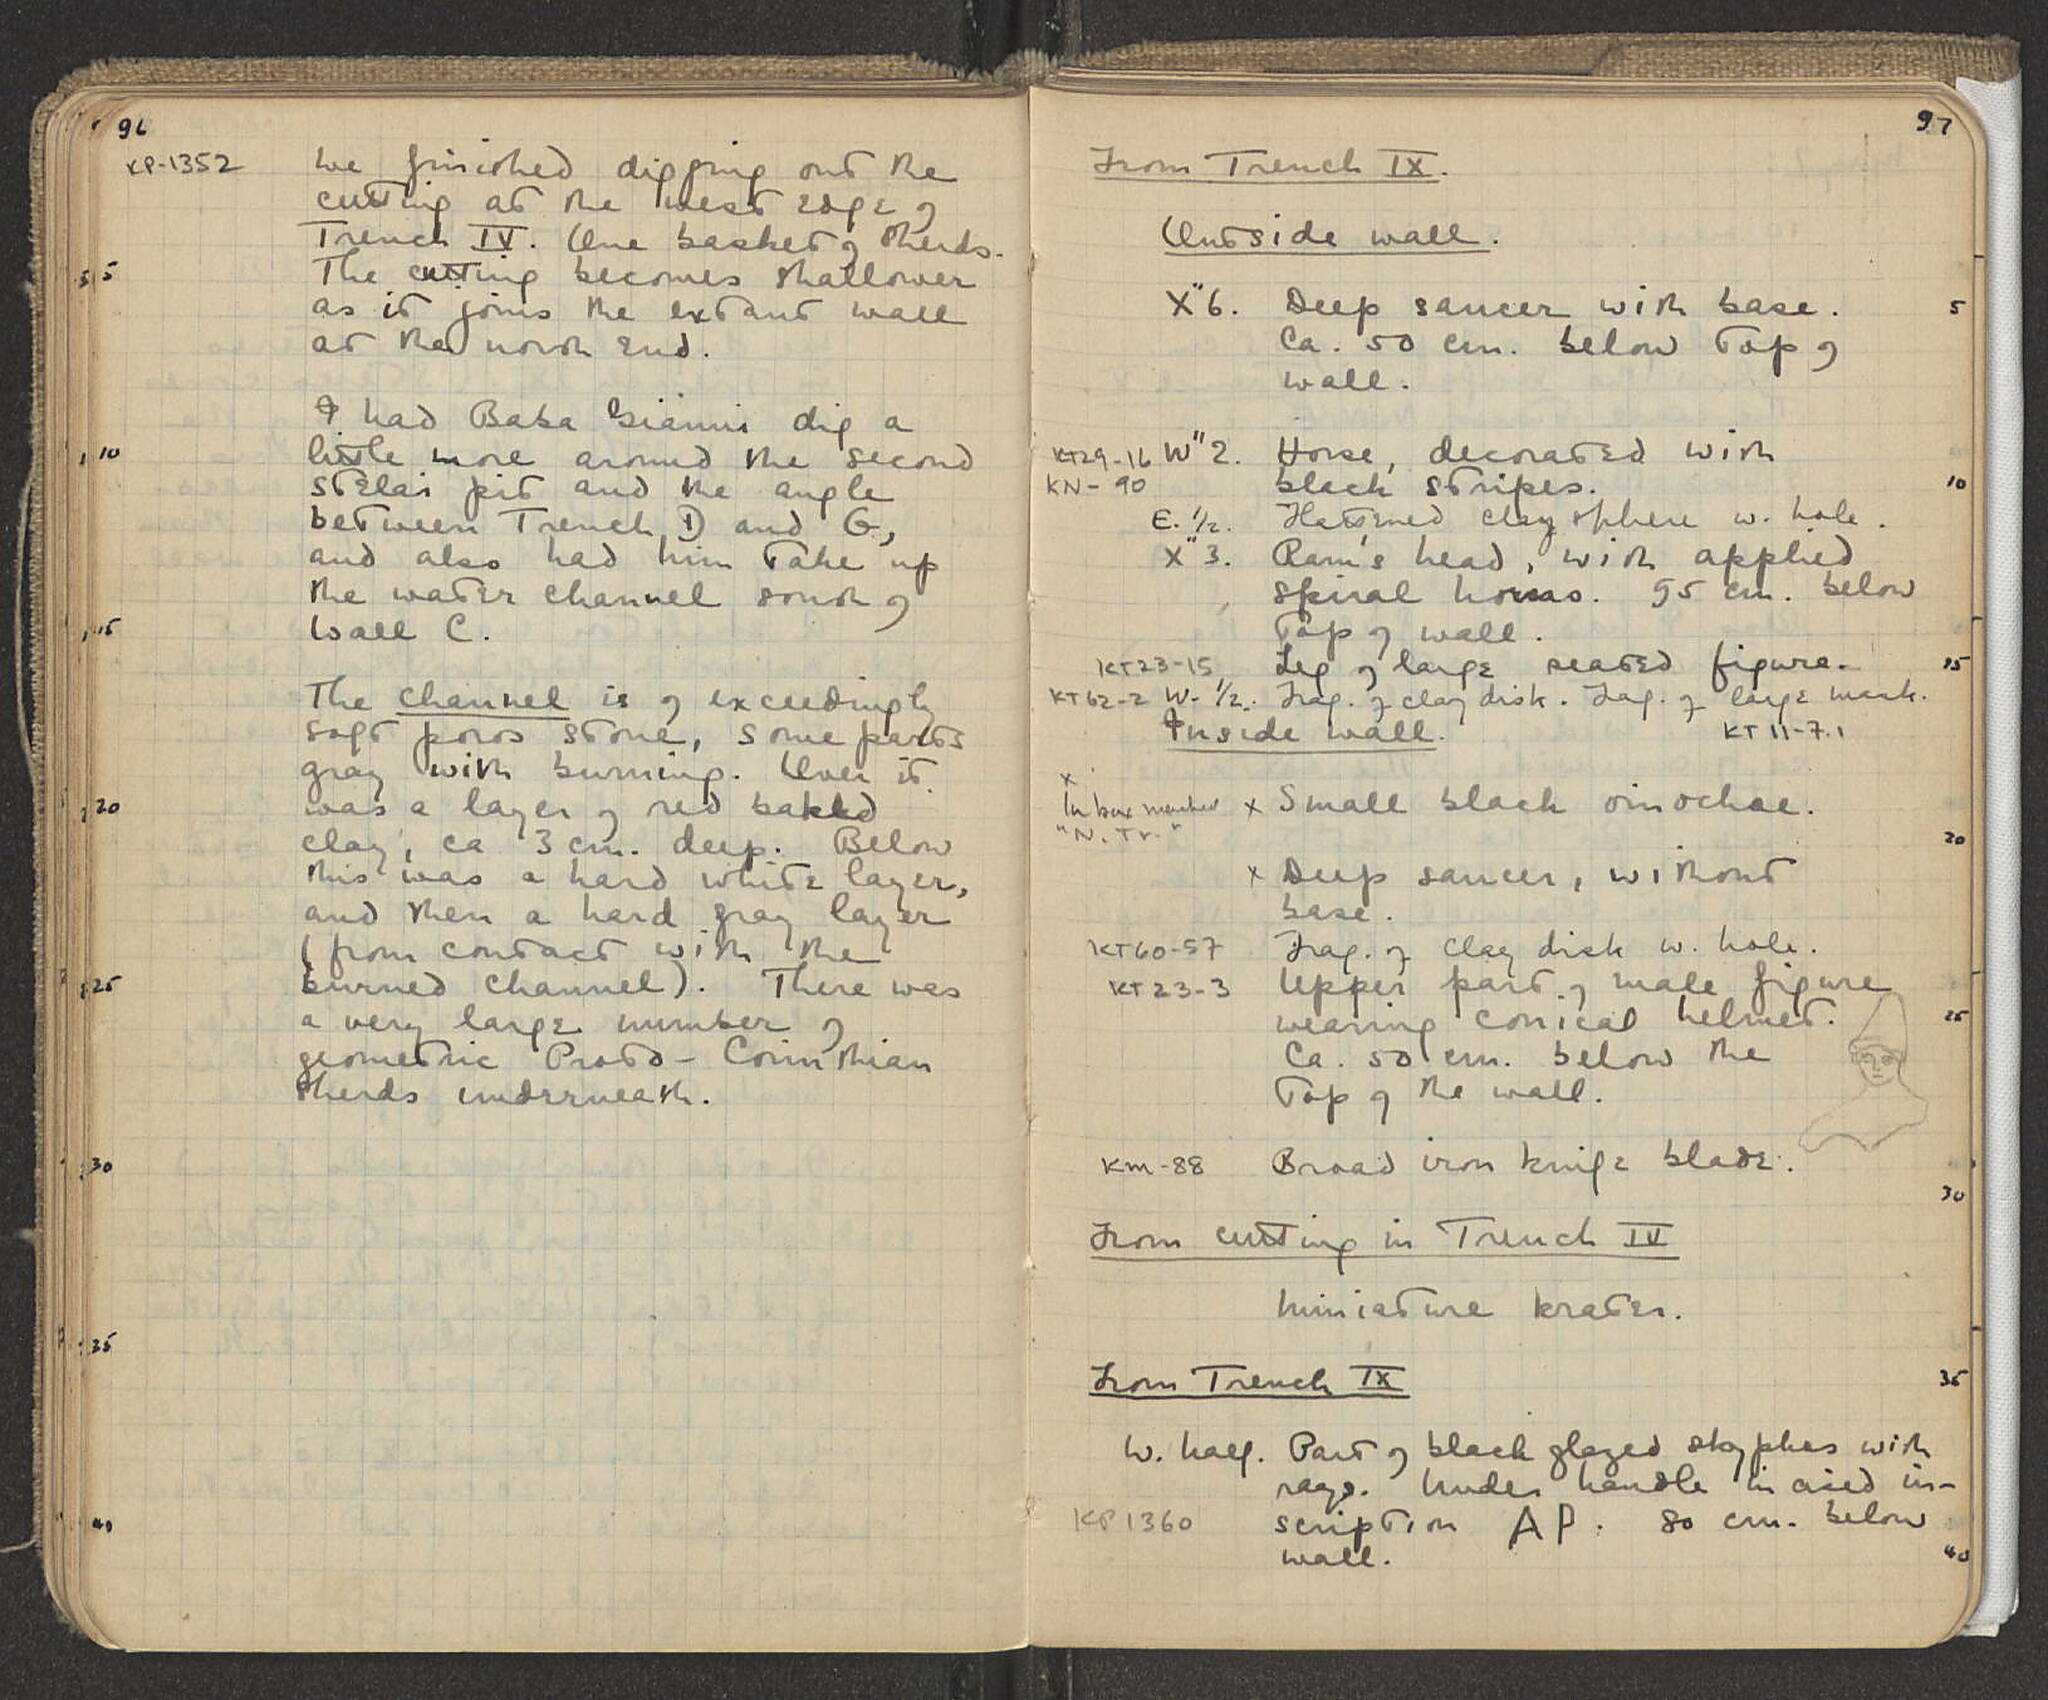 96
KP-1352 We finished digging out the
cutting at the west edge of
Trench IV. One basket of sherds.
5 The cutting becomes shallower
as it joins the extant wall
at the north end.
I had Baba Gianni dig a
10 little more around the second
stelai pit and the angle
between Trench D and G,
and also had him take up
the water channel south of
15 Wall C.
The channel is of exceedingly
soft poros stone, some parts
gray with burning. Over it
20 was a layer of red baked
clay, ca 3 cm. deep. Below
this was a hard white layer,
and then a hard gray layer
(from contact with the
25 burned channel). There was
a very large number of
geometric Proto-Corinthian
sherds underneath.
30
35
40
97
From Trench IX.
Outside wall.
X" 6. Deep saucer with base. 5
Ca. 50 cm. below top of
wall.
KT29-16 W" 2. Horse, decorated with
KN-90 black stripes. 10
E. 1/2. Flattened clay sphere w. hole.
X" 3. Ram's head, with applied
spiral horns. 95 cm. below
top of wall.
KT23-15 Leg of large seated figure. 15
KT62-2 W. 1/2. Frag. of clay disk. Frag. of large mask.
Inside wall. KT 11-7.1
x
In box marked x Small black oinochoe.
"N. Tr." 20
x Deep saucer, without
base.
KT60-57 Frag. of clay disk w. hole.
KT23-3 Upper part of male figure
wearing conical helmet. 25
Ca. 50 cm. below the
top of the wall.
KM-88 Broad iron knife blade.
30
From cutting in Trench IV
Miniature krater.
From Trench IX 35
W. half. Part of black glazed skyphos with
rays. Under handle incised in-
KP1360 scription AP. 80 cm. below
wall. 40